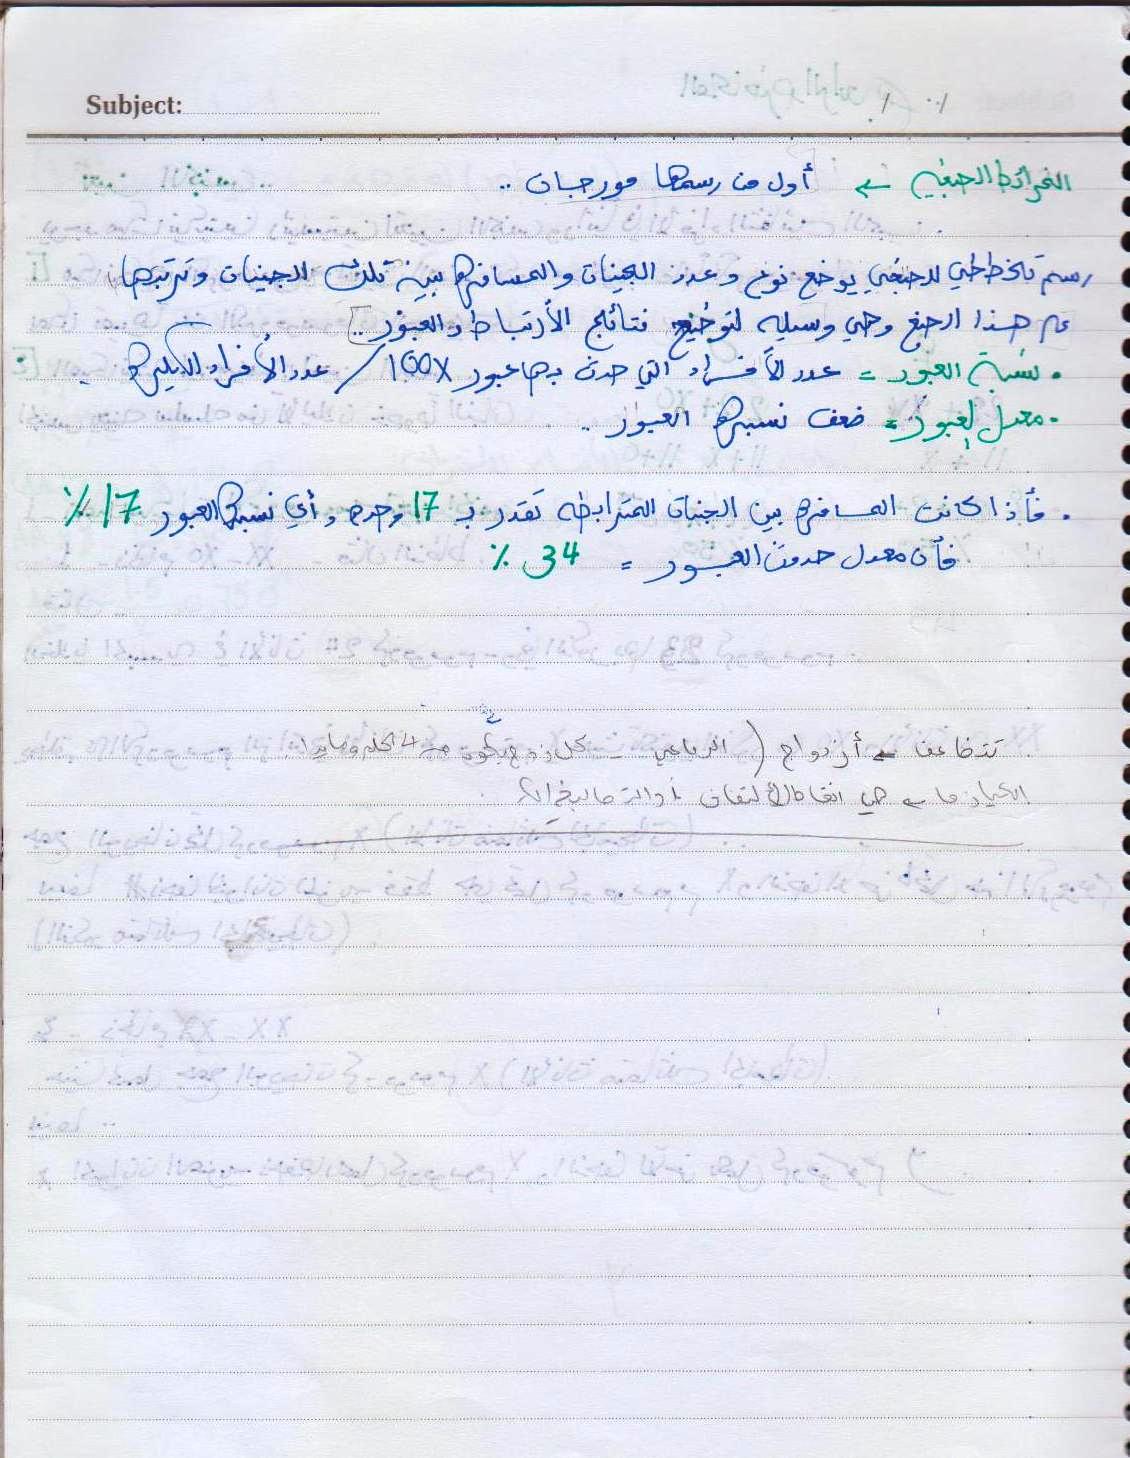 Subject:
الخرائط الصبغية ← أول من رسمها مورجان ..
رسم تخطيطي للصبغي يوضع نوع وعدد الجينات والمسافة بين تلك الجينات وترتيبها
هذا الصبغ وهي وسيله لتوضيح نتائج الأرتباط والعبور ..
. نسبة العبور = عدد الأفراد التي حدث بها عبور 100X / عدد الأفراد الكلية .
. معدل العبور = ضعف نسبة العبور ..
. فأذا كانت المسافة بين الجينات المترابطه تقدر بـ 17 وحده وأي نسبة العبور 17 %
فأن معدل حدوث العبور = 34 %
تتضاعف ← أزواج ( الرباعي - كل زوج يتكون من 4
الكيازما ← هي